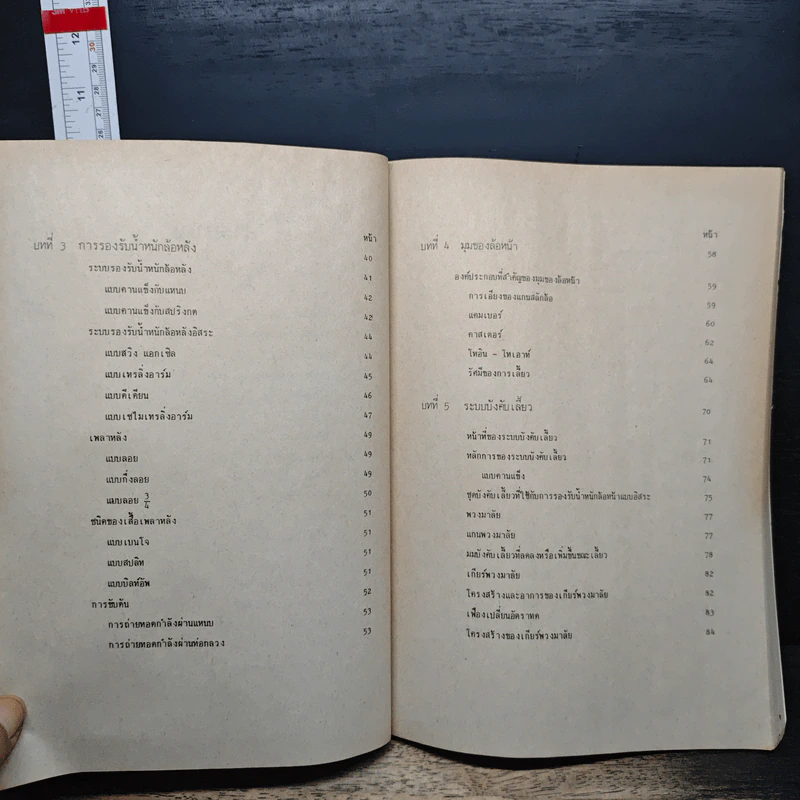 หน้า
บทที่ 3 การรองรับน้ำหนักล้อหลัง 40
ระบบรองรับน้ำหนักล้อหลัง 41
แบบคานแข็งกับแหนบ 42
แบบคานแข็งกับสปริงกด 42
ระบบรองรับน้ำหนักล้อหลังอิสระ 44
แบบสวิง แอกเซิล 44
แบบเทรลิ่งอาร์ม 45
แบบดีเดียน 46
แบบเซไมเทรลิ่งอาร์ม 47
เพลาหลัง 49
แบบลอย 49
แบบกึ่งลอย 49
แบบลอย 3/4 50
ชนิดของเสื้อเพลาหลัง 51
แบบเบนโจ 51
แบบสปลิท 51
แบบบิลท์อัพ 51
การขับดัน 52
การถ่ายทอดกำลังผ่านแหนบ 53
การถ่ายทอดกำลังผ่านท่อกลวง 53
หน้า
บทที่ 4 มุมของล้อหน้า 58
องค์ประกอบที่สำคัญของมุมของล้อหน้า 59
การเอียงของแกนสลักล้อ 59
แคมเบอร์ 60
คาสเตอร์ 62
โทอิน - โทเอาท์ 64
รัศมีของการเลี้ยว 64
บทที่ 5 ระบบบังคับเลี้ยว 70
หน้าที่ของระบบบังคับเลี้ยว 71
หลักการของระบบบังคับเลี้ยว 71
แบบคานแข็ง 74
ชุดบังคับเลี้ยวที่ใช้กับการรองรับน้ำหนักล้อหน้าแบบอิสระ 75
พวงมาลัย 77
แกนพวงมาลัย 77
มุมบังคับเลี้ยวที่ลดลงหรือเพิ่มขึ้นขณะเลี้ยว 78
เกียร์พวงมาลัย 82
โครงสร้างและอาการของเกียร์พวงมาลัย 82
เฟืองเปลี่ยนอัตราทด 83
โครงสร้างของเกียร์พวงมาลัย 84
12
30
29
28
11
27
26